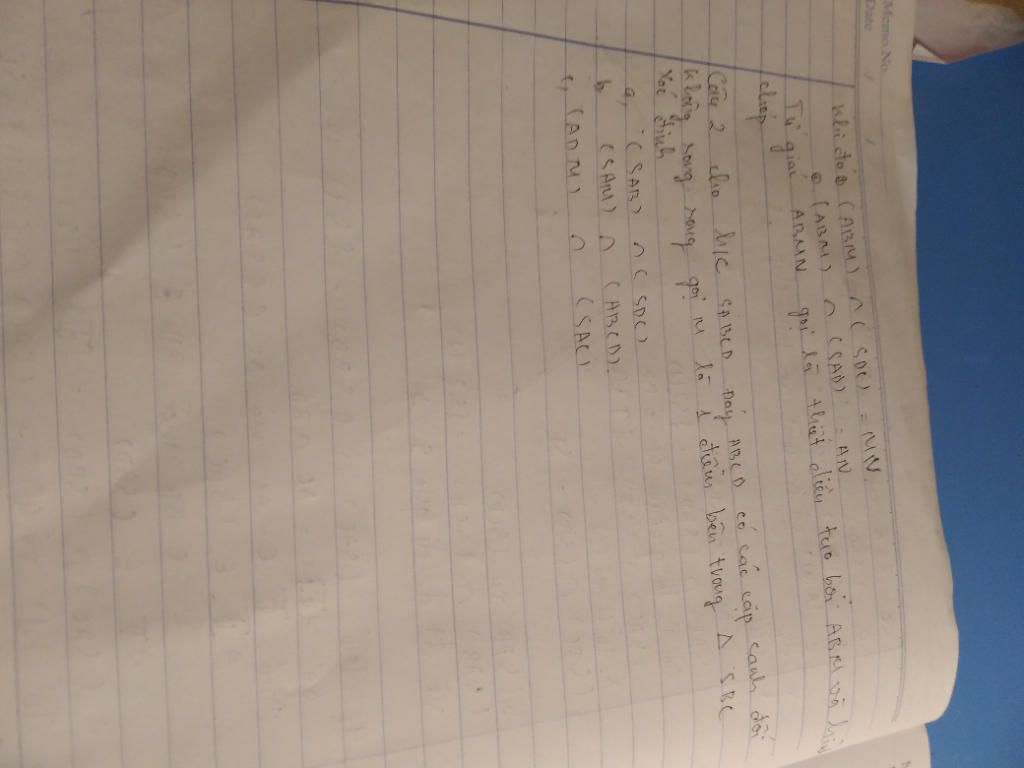 Memo No.
Date / /
Khi đó (ABM) ∩ (SDC) = MN.
(ABM) ∩ (SAD) = AN
Tứ giác ABMN gọi là thiết diện tạo bởi ABM và hình
chóp
Câu 2 cho h/c SABCD Đáy ABCD có các cặp cạnh đối
không song song gọi M là 1 điểm bên trong Δ SBC
Xác định
a, (SAB) ∩ (SDC)
b (SAM) ∩ (ABCD)
c, (ADM) ∩ (SAC)